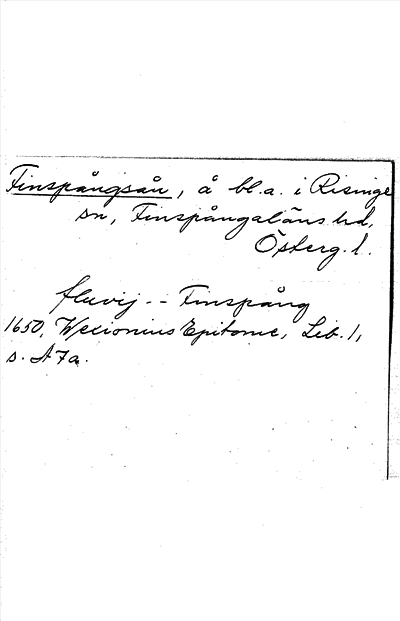 Finspångsån, å bl.a. i Risinge
sn, Finspångaläns hd,
Österg. l.
fluvij -- Finspång
1650, Wexionius Epitome, Lib. 1,
s. A 7a.